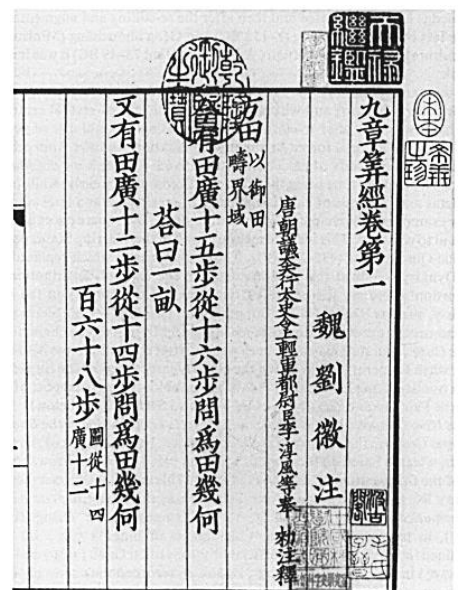 天祿繼鑑
宋本
希世之珍
九章筭經卷第一
魏劉徽 注
唐朝議大夫行太史令上輕車都尉臣李淳風等奉 勑注釋
方田以御田疇界域
今有田廣十五步從十六步問爲田幾何
荅曰一畝
又有田廣十二步從十四步問爲田幾何
百六十八步圖從十四廣十二
乾隆御覽之寶